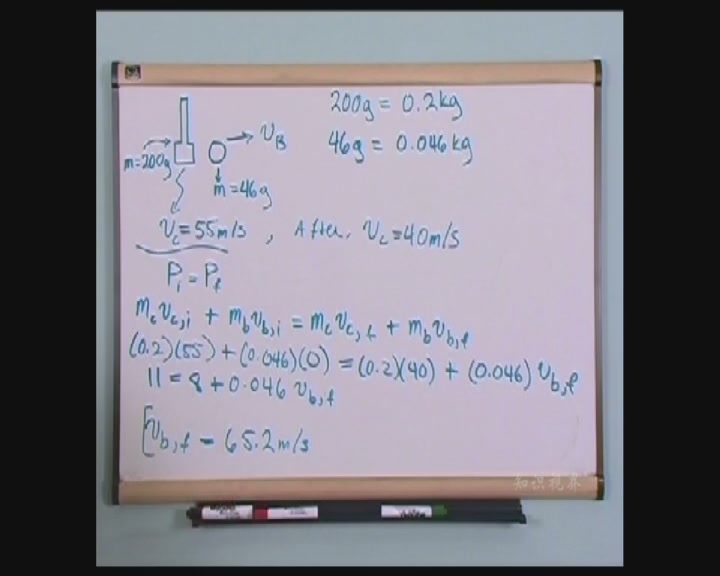 200g = 0.2kg
46g = 0.046kg
v_B
m=200g
m=46g
v_c=55m/s , After, v_c=40m/s
P_i = P_f
m_c v_c,i + m_b v_b,i = m_c v_c,f + m_b v_b,f
(0.2)(55) + (0.046)(0) = (0.2)(40) + (0.046) v_b,f
11 = 8 + 0.046 v_b,f
v_b,f = 65.2m/s
知识视界